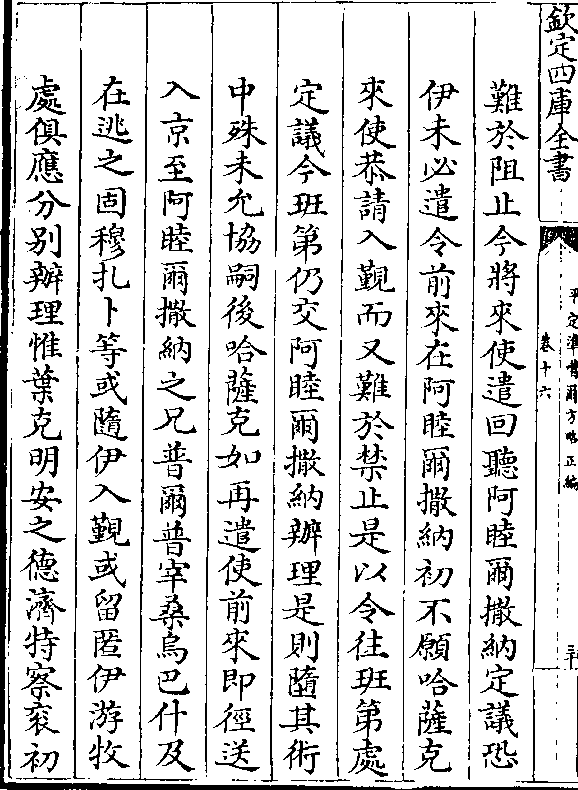 欽定四庫全書
平定準噶爾方略正編
卷十六
三十
難於阻止今將來使遣回聽阿睦爾撒納定議恐
伊未必遣令前來在阿睦爾撒納初不願哈薩克
來使恭請入覲而又難於禁止是以令往班第處
定議今班第仍交阿睦爾撒納辦理是則隨其術
中殊未允協嗣後哈薩克如再遣使前來即徑送
入京至阿睦爾撒納之兄普爾普宰桑烏巴什及
在逃之固穆扎卜等或隨伊入覲或留匿伊游牧
處俱應分別辦理惟葉克明安之德濟特察衮初